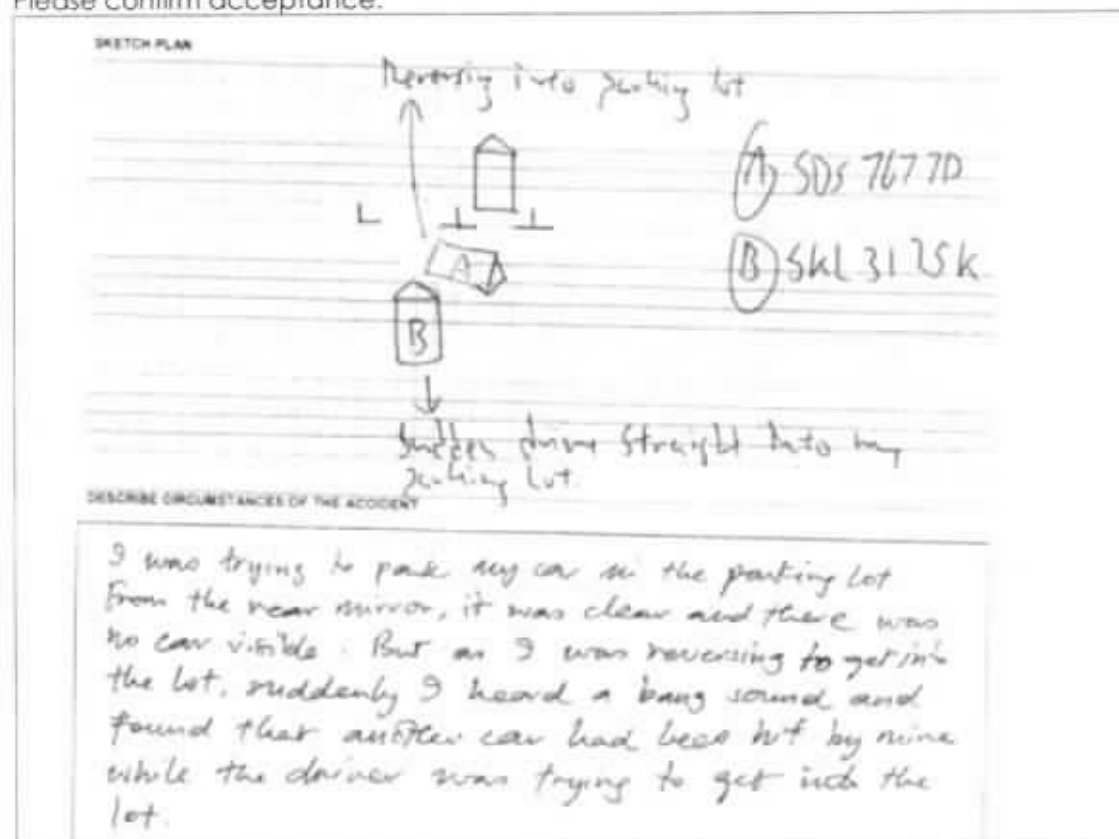 Please confirm acceptance.
SKETCH PLAN
Reversing into parking lot
(A) SDS 7677D
(B) SKL 3125K
A
B
Sudden drive Straight Into my
parking Lot.
DESCRIBE CIRCUMSTANCES OF THE ACCIDENT
I was trying to park my car in the parking lot
From the rear mirror, it was clear and there was
no car visible. But as I was reversing to get into
the lot, suddenly I heard a bang sound and
found that another car had been hit by mine
while the driver was trying to get into the
lot.